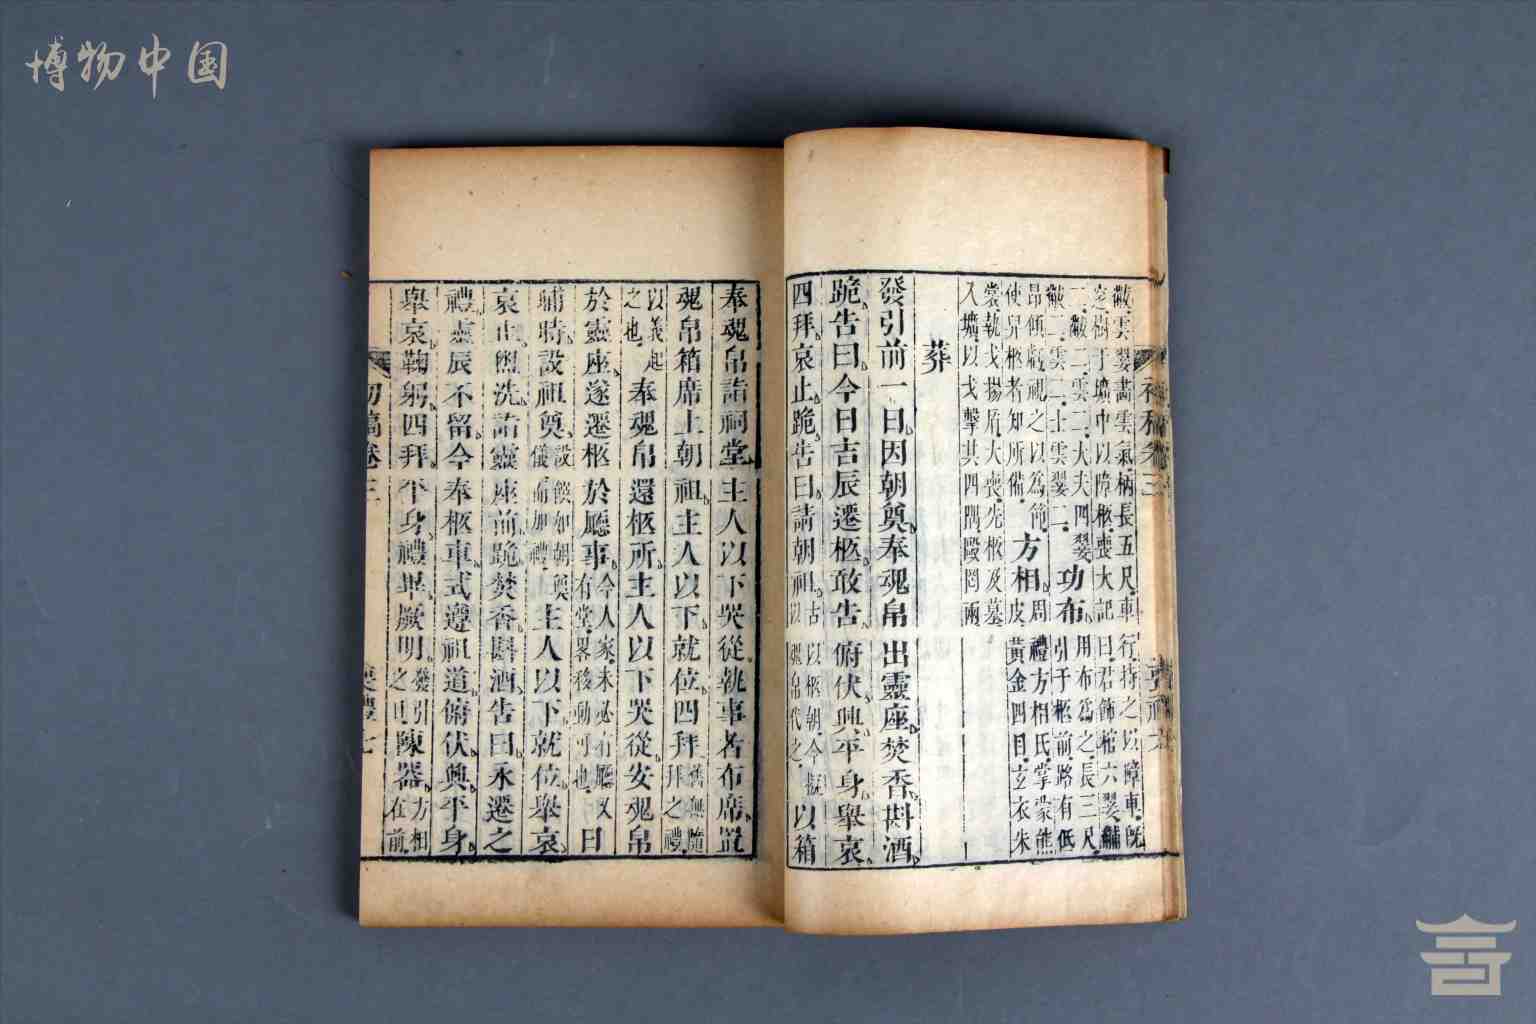 博物中国
黻雲翣畫雲氣柄長五尺車行持之以障車既
窆樹于壙中以障柩喪大記曰君飾棺六翣黼
二黻二雲二大夫四翣
黻二雲二士雲翣二
功布
用布爲之長三尺
引于柩前路有低
昂傾虧視之以爲範
使舁柩者知所備
方相
周禮方相氏掌蒙熊
皮黃金四目玄衣朱
裳執戈揚盾大喪先柩及墓
入壙以戈擊其四隅毆罔兩
葬
發引前一日因朝奠奉魂帛出靈座焚香斟酒
跪告曰今日吉辰遷柩敢告俯伏興平身舉哀
四拜哀止跪告曰請朝祖
古以柩朝今擬
以魂帛代之
以箱
奉魂帛詣祠堂主人以下哭從執事者布席置
魂帛箱席上朝祖主人以下就位四拜
舊無
拜之禮
以義起
之也
奉魂帛還柩所主人以下哭從安魂帛
於靈座遂遷柩於廳事
今人家未必有廳又
有堂畧移動可也
日
晡時設祖奠
設饌如朝奠
儀而加禮
主人以下就位舉哀
哀止盥洗詣靈座前跪焚香斟酒告曰永遷之
禮靈辰不留今奉柩車式遵祖道俯伏興平身
舉哀鞠躬四拜平身禮畢厥明
發引
之日
陳器
方相
在前
初稿卷三
喪禮七